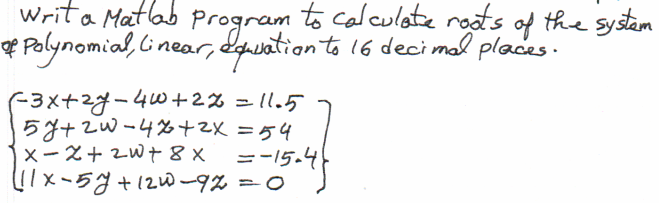 Writ a Matlab Program to Calculate roots of the system
of Polynomial, linear, equation to 16 decimal places.
-3x+2y-4w+2z = 11.5
5y+2w-4z+2x = 54
x-z+2w+8x = -15.4
11x-5y+12w-9z = 0